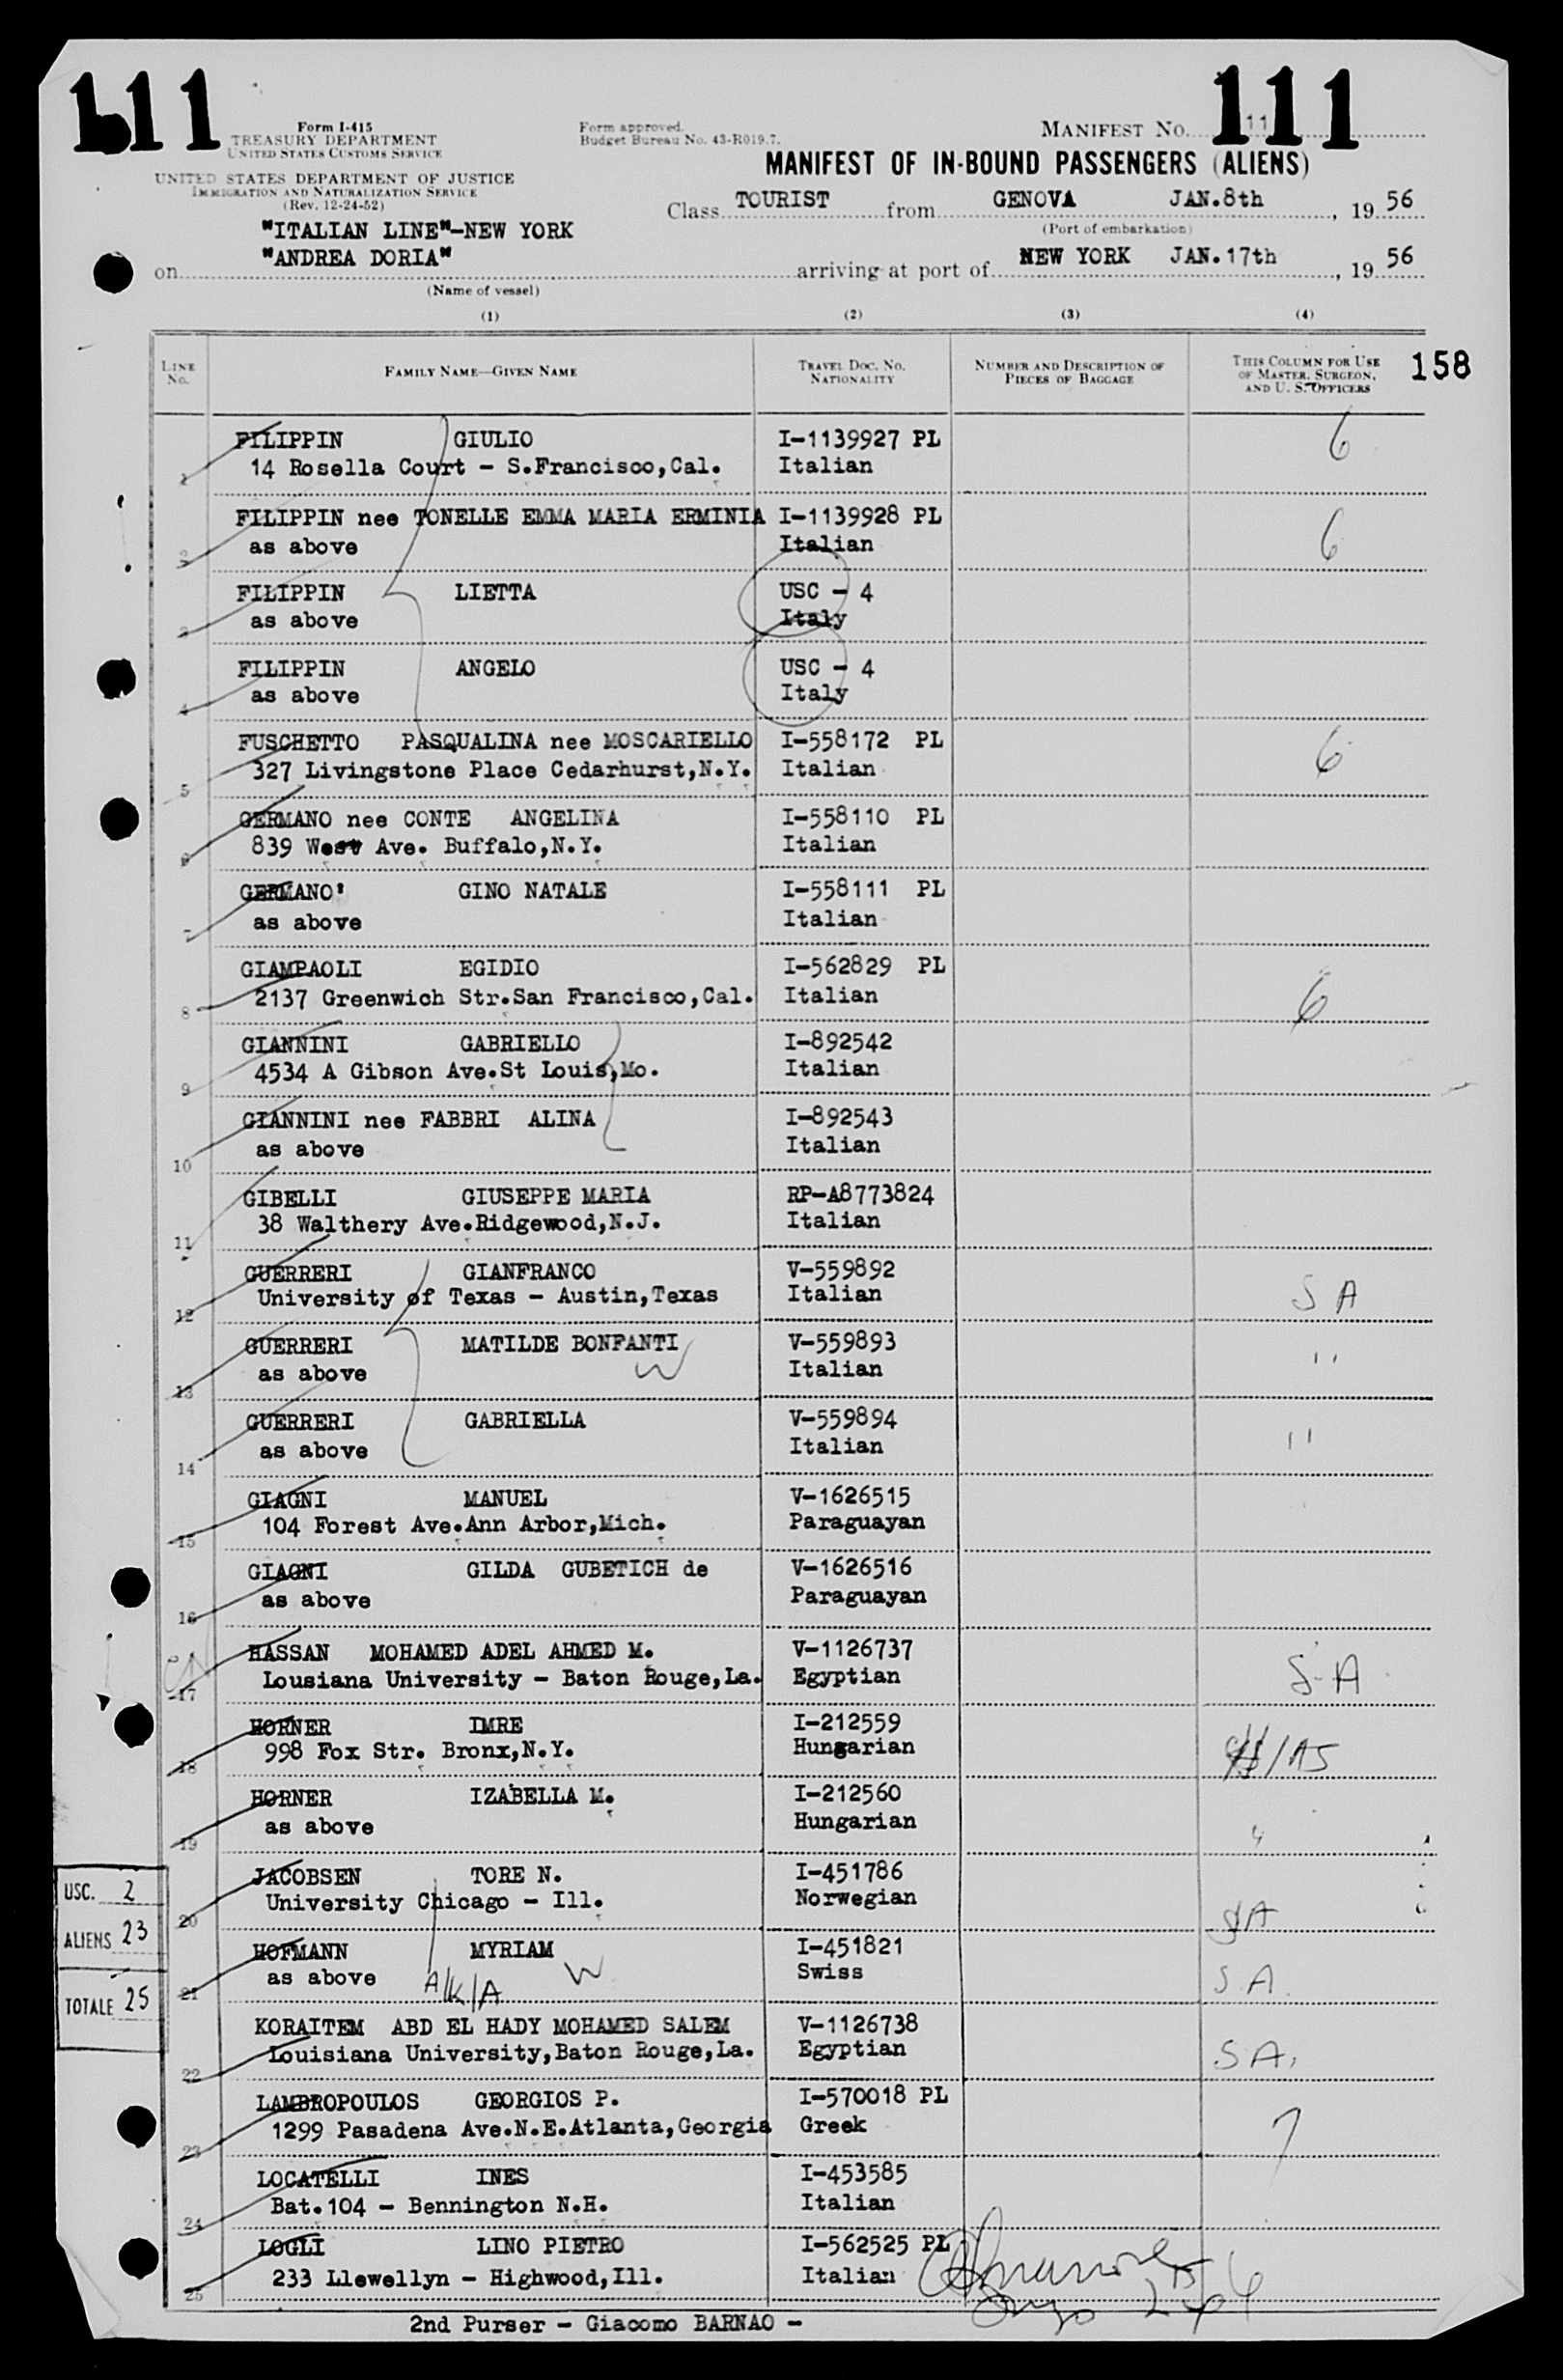 111
111
Form I-415
TREASURY DEPARTMENT
UNITED STATES CUSTOMS SERVICE
Form approved.
Budget Bureau No. 43-R019.7.
MANIFEST No. 11
UNITED STATES DEPARTMENT OF JUSTICE
IMMIGRATION AND NATURALIZATION SERVICE
(Rev. 12-24-52)
MANIFEST OF IN-BOUND PASSENGERS (ALIENS)
Class TOURIST from GENOVA JAN.8th, 19 56
(Port of embarkation)
"ITALIAN LINE"-NEW YORK
on "ANDREA DORIA" arriving at port of NEW YORK JAN.17th, 19 56
(Name of vessel)
(1) (2) (3) (4)
LINE No. FAMILY NAME—GIVEN NAME TRAVEL DOC. No. NATIONALITY NUMBER AND DESCRIPTION OF PIECES OF BAGGAGE THIS COLUMN FOR USE OF MASTER, SURGEON, AND U. S. OFFICERS 158
FILIPPIN GIULIO I-1139927 PL 6
1 14 Rosella Court - S.Francisco,Cal. Italian
FILIPPIN nee TONELLE EMMA MARIA ERMINIA I-1139928 PL 6
2 as above Italian
FILIPPIN LIETTA USC - 4
3 as above Italy
FILIPPIN ANGELO USC - 4
4 as above Italy
FUSCHETTO PASQUALINA nee MOSCARIELLO I-558172 PL 6
5 327 Livingstone Place Cedarhurst,N.Y. Italian
GERMANO nee CONTE ANGELINA I-558110 PL
6 839 West Ave. Buffalo,N.Y. Italian
GERMANO' GINO NATALE I-558111 PL
7 as above Italian
GIAMPAOLI EGIDIO I-562829 PL 6
8 2137 Greenwich Str.San Francisco,Cal. Italian
GIANNINI GABRIELLO I-892542
9 4534 A Gibson Ave.St Louis,Mo. Italian
GIANNINI nee FABBRI ALINA I-892543
10 as above Italian
GIBELLI GIUSEPPE MARIA RP-A8773824
11 38 Walthery Ave.Ridgewood,N.J. Italian
GUERRERI GIANFRANCO V-559892
12 University of Texas - Austin,Texas Italian S A
GUERRERI MATILDE BONFANTI V-559893 "
13 as above W Italian
GUERRERI GABRIELLA V-559894 "
14 as above Italian
GIAGNI MANUEL V-1626515
15 104 Forest Ave.Ann Arbor,Mich. Paraguayan
GIAGNI GILDA GUBETICH de V-1626516
16 as above Paraguayan
HASSAN MOHAMED ADEL AHMED M. V-1126737
17 Lousiana University - Baton Rouge,La. Egyptian S-A
HORNER IMRE I-212559
18 998 Fox Str. Bronx,N.Y. Hungarian
HORNER IZABELLA M. I-212560
19 as above Hungarian
JACOBSEN TORE N. I-451786
20 University Chicago - Ill. Norwegian SA
HOFMANN MYRIAM I-451821
21 as above A/K/A W Swiss S A
KORAITEM ABD EL HADY MOHAMED SALEM V-1126738
22 Louisiana University,Baton Rouge,La. Egyptian S A
LAMBROPOULOS GEORGIOS P. I-570018 PL 7
23 1299 Pasadena Ave.N.E.Atlanta,Georgia Greek
LOCATELLI INES I-453585
24 Bat.104 - Bennington N.H. Italian
LOGLI LINO PIETRO I-562525 PL
25 233 Llewellyn - Highwood,Ill. Italian 6
USC. 2
ALIENS 23
TOTALE 25
2nd Purser - Giacomo BARNAO -